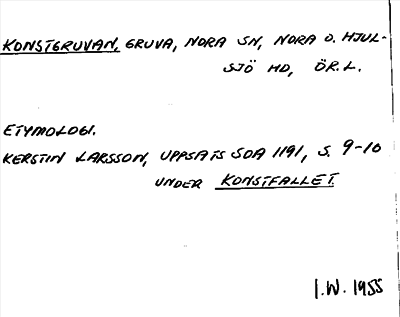 KONSTGRUVAN, GRUVA, NORA SN, NORA O. HJUL-
SJÖ HD, ÖR.L.
ETYMOLOGI.
KERSTIN LARSSON, UPPSATS SOA 1191, S. 9-10
UNDER KONSTFALLET.
I.W. 1955